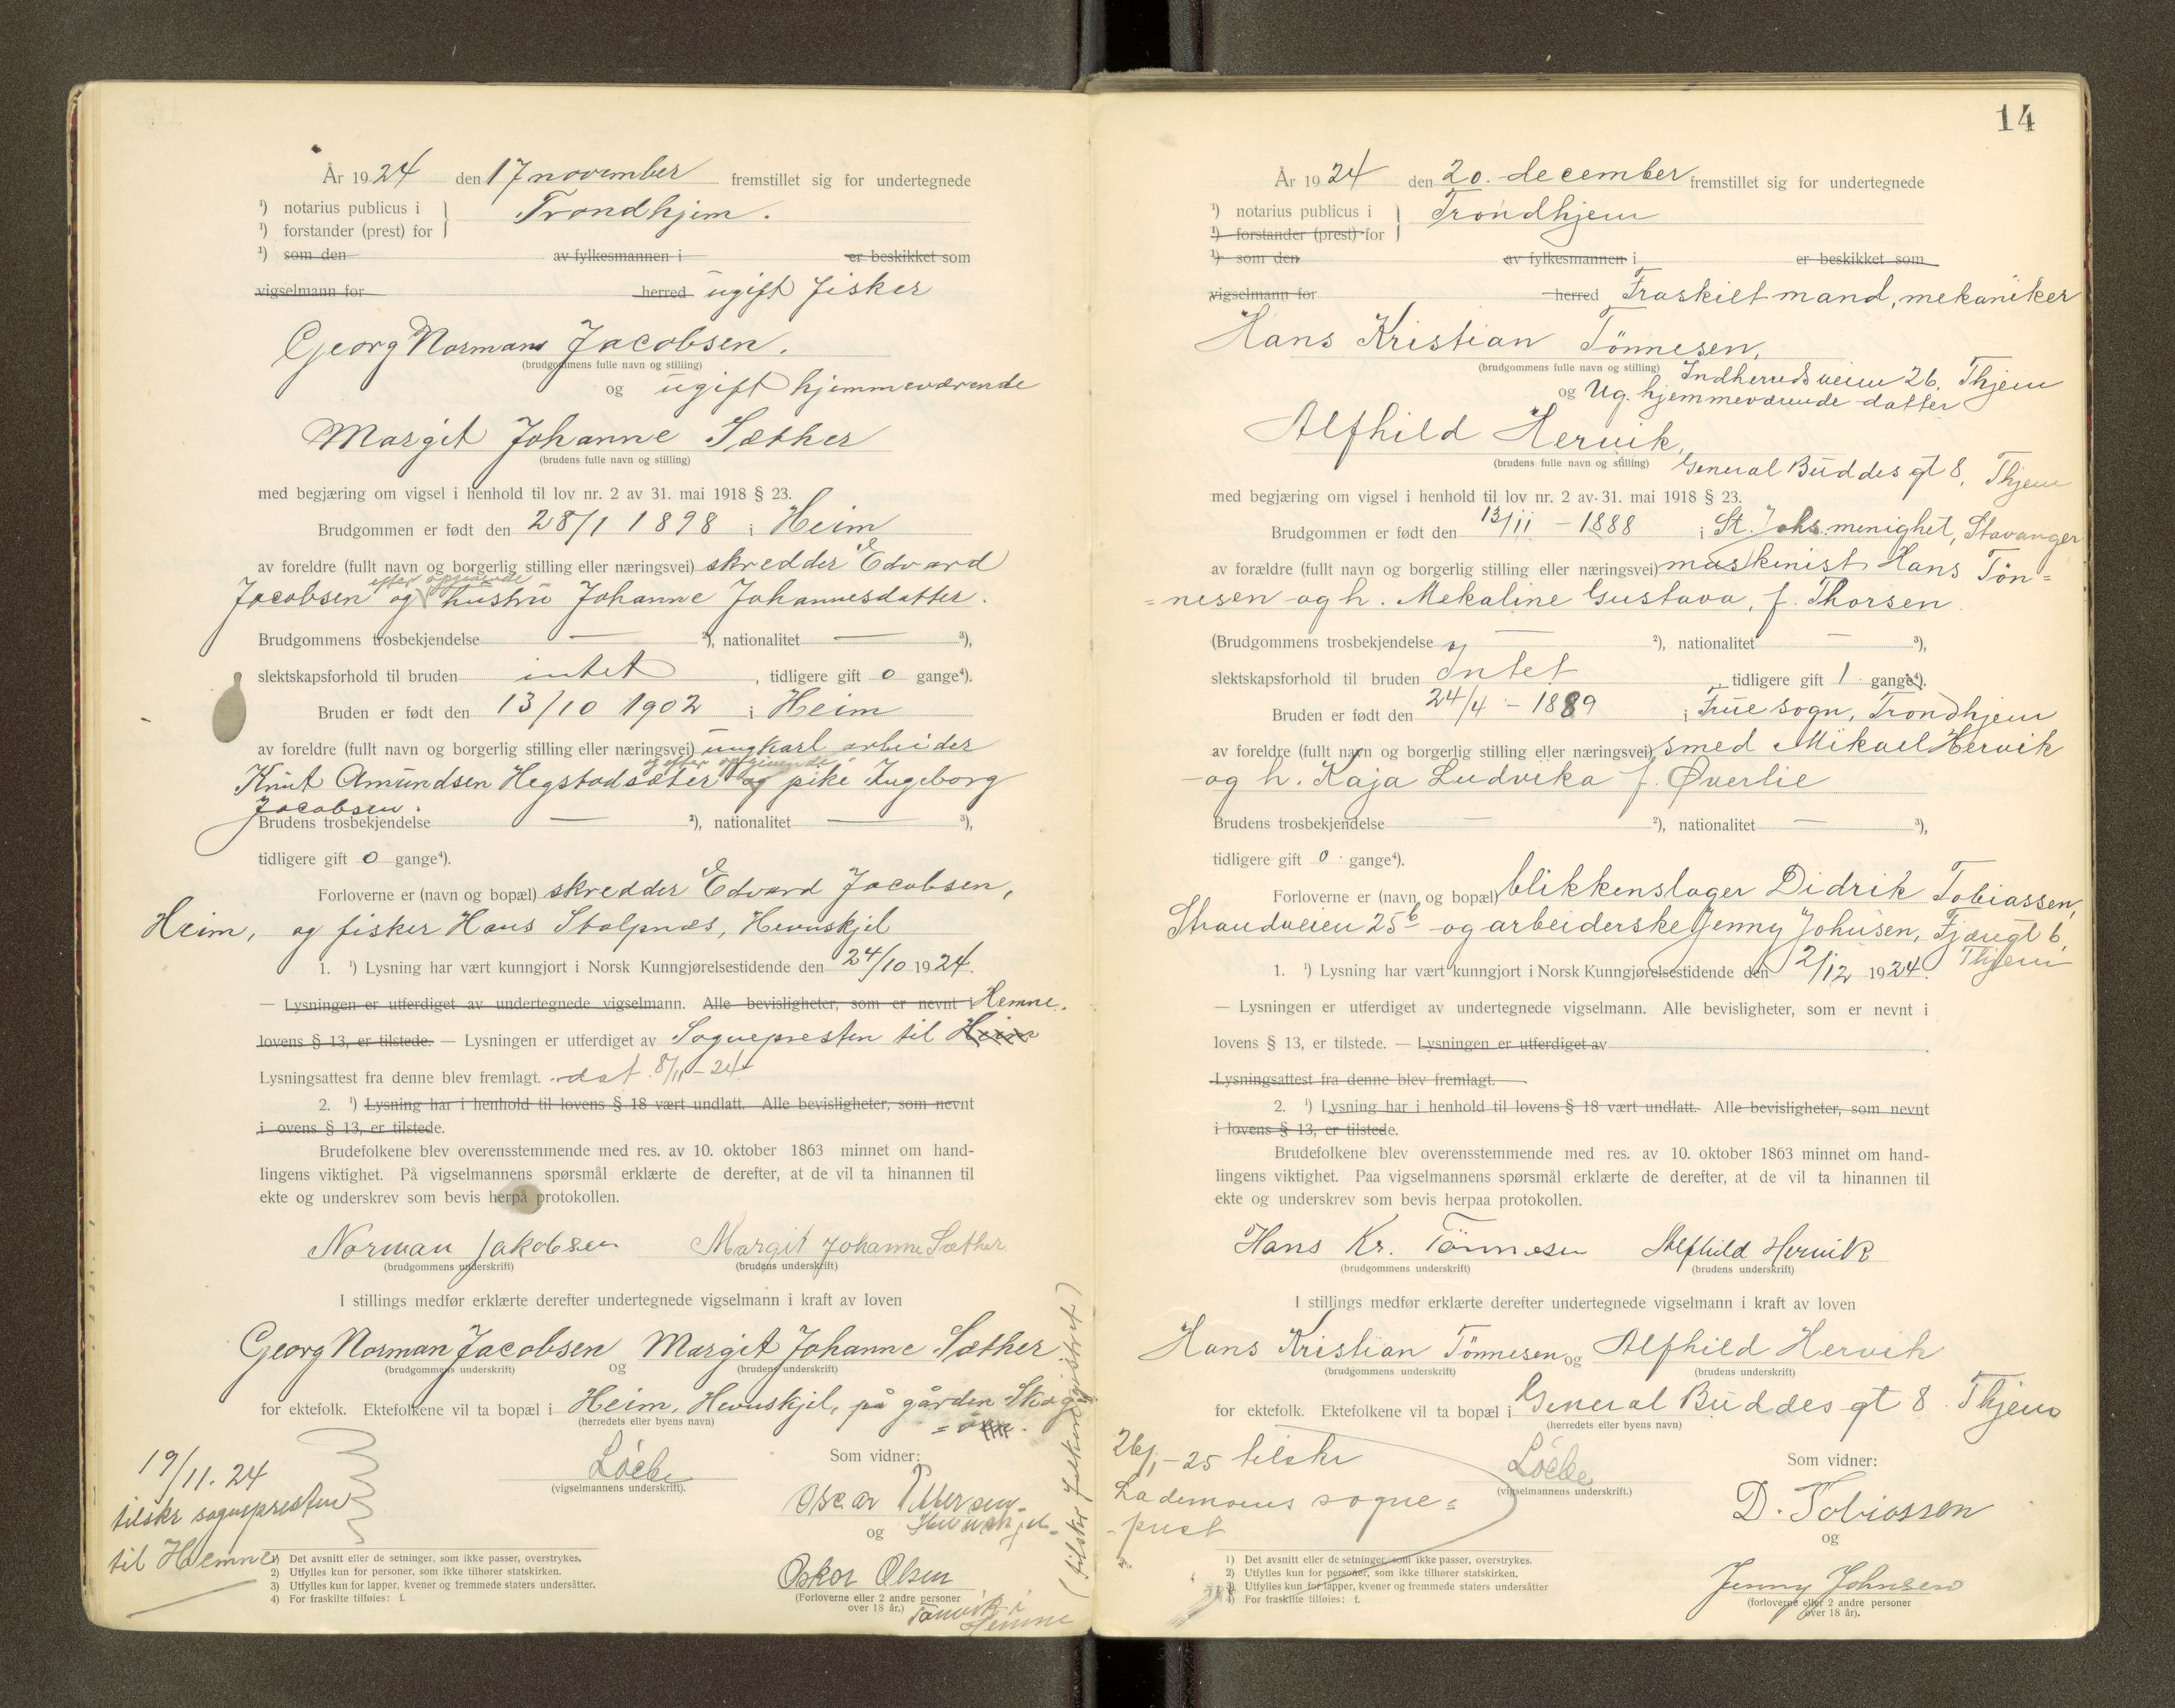 År 1924 den 17 november fremstillet sig for undertegnede
¹) notarius publicus i
Trondhjem.
¹) forstander (prest) for
¹) som den av fylkesmannen i er beskikket som
vigselmann for herred ugift fisker
Georg Norman Jacobsen.
(brudgommens fulle navn og stilling)
og ugift hjemmeværende
Margit Johanne Sæther
(brudens fulle navn og stilling)
med begjæring om vigsel i henhold til lov nr. 2 av 31. mai 1918 § 23.
Brudgommen er født den 28/1 1898 i Heim
av foreldre (fullt navn og borgerlig stilling eller næringsvei) skredder E Edvard
efter opgivende
Jacobsen og hustru Johanne Johannesdatter.
Brudgommens trosbekjendelse — ²), nationalitet — ³),
slektskapsforhold til bruden intet, tidligere gift 0 gange⁴).
Bruden er født den 13/10 1902 i Heim
av foreldre (fullt navn og borgerlig stilling eller næringsvei) ungkarl arbeider
og efter opgivende
Knut Amundsen Hegstadsæter og pike Ingeborg
Jacobsen.
Brudens trosbekjendelse — ²), nationalitet — ³),
tidligere gift 0 gange⁴).
Forloverne er (navn og bopæl) skredder E Edvard Jacobsen,
Heim, og fisker Hans Stolpnæs, Hevnskjel
1. ¹) Lysning har vært kunngjort i Norsk Kunngjørelsestidende den 24/10 1924.
— Lysningen er utferdiget av undertegnede vigselmann. Alle bevisligheter, som er nevnt i Hemne.
lovens § 13, er tilstede. — Lysningen er utferdiget av Sognepresten til Heim
Lysningsattest fra denne blev fremlagt. dat. 8/11-24
2. ¹) Lysning har i henhold til lovens § 18 vært undlatt. Alle bevisligheter, som nevnt
i ovens § 13, er tilstede.
Brudefolkene blev overensstemmende med res. av 10. oktober 1863 minnet om hand-
lingens viktighet. På vigselmannens spørsmål erklærte de derefter, at de vil ta hinannen til
ekte og underskrev som bevis herpå protokollen.
Norman Jakobsen Margit Johanne Sæther
(brudgommens underskrift) (brudens underskrift)
I stillings medfør erklærte derefter undertegnede vigselmann i kraft av loven
Georg Norman Jacobsen og Margit Johanne Sæther
(brudgommens underskrift) (brudens underskrift)
for ektefolk. Ektefolkene vil ta bopæl i Heim, Hevnskjel, på gården Skog
(herredets eller byens navn)
Løcke
(vigselmannens underskrift).
Som vidner:
Oscar
og
Oskar Olsen
(Forloverne eller 2 andre personer
over 18 år.)
Hemne
19/11.24
tilskr sognepresten
til Hemne
1) Det avsnitt eller de setninger, som ikke passer, overstrykes.
2) Utfylles kun for personer, som ikke tilhører statskirken.
3) Utfylles kun for lapper, kvener og fremmede staters undersåtter.
4) For fraskilte tilføies: f.
(tilskr folkeregistret)
14
År 1924 den 20. december fremstillet sig for undertegnede
¹) notarius publicus i
Trondhjem
¹) forstander (prest) for
¹) som den av fylkesmannen i er beskikket som
vigselmann for herred Fraskilt mand, mekaniker
Hans Kristian Tönnesen,
(brudgommens fulle navn og stilling) Indherredsveien 26, Thjem
og Ug. hjemmeværende datter
Alfhild Hervik,
(brudens fulle navn og stilling) General Buddes gt 8, Thjem
med begjæring om vigsel i henhold til lov nr. 2 av 31. mai 1918 § 23.
Brudgommen er født den 13/11 - 1888 i St. Johs. menighet, Stavanger
av forældre (fullt navn og borgerlig stilling eller næringsvei) maskinist Hans Tön=
=nesen og h. Mekaline Gustava, f. Thorsen
(Brudgommens trosbekjendelse — ²), nationalitet — ³),
slektskapsforhold til bruden Intet, tidligere gift 1 gange⁴).
Bruden er født den 24/4 - 1889 i Frue sogn, Trondhjem
av foreldre (fullt navn og borgerlig stilling eller næringsvei) smed Mikael Hervik
- og h. Kaja Ludvika f. Øverlie
Brudens trosbekjendelse — ²), nationalitet — ³),
tidligere gift 0 gange⁴).
Forloverne er (navn og bopæl) blikkenslager Didrik Tobiassen,
Strandveien 25b og arbeiderske Jenny Johnsen, Fjæregt 6,
Thjem
1. ¹) Lysning har vært kunngjort i Norsk Kunngjørelsestidende den 2/12 1924.
— Lysningen er utferdiget av undertegnede vigselmann. Alle bevisligheter, som er nevnt i
lovens § 13, er tilstede. — Lysningen er utferdiget av
Lysningsattest fra denne blev fremlagt.
2. ¹) Lysning har i henhold til lovens § 18 vært undlatt. Alle bevisligheter, som nevnt
i lovens § 13, er tilstede.
Brudefolkene blev overensstemmende med res. av 10. oktober 1863 minnet om hand-
lingens viktighet. Paa vigselmannens spørsmål erklærte de derefter, at de vil ta hinannen til
ekte og underskrev som bevis herpaa protokollen.
Hans Kr. Tönnesen Alfhild Hervik
(brudgommens underskrift) (brudens underskrift)
I stillings medfør erklærte derefter undertegnede vigselmann i kraft av loven
Hans Kristian Tönnesen og Alfhild Hervik
(brudgommens underskrift) (brudens underskrift)
for ektefolk. Ektefolkene vil ta bopæl i General Buddes gt 8 Thjem
(herredets eller byens navn)
26/1-25 tilskr
Lademoens sogne=
-prest
Løcke
(vigselmannens underskrift.)
Som vidner:
D. Tobiassen
og
Jenny Johnsen
(forloverne eller 2 andre personer
over 18 år).
1) Det avsnitt eller de setninger, som ikke passer, overstrykes.
2) Utfylles kun for personer, som ikke tilhører statskirken.
3) Utfylles kun for lapper, kvener og fremmede staters undersåtter
4) For fraskilte tilføies: f.